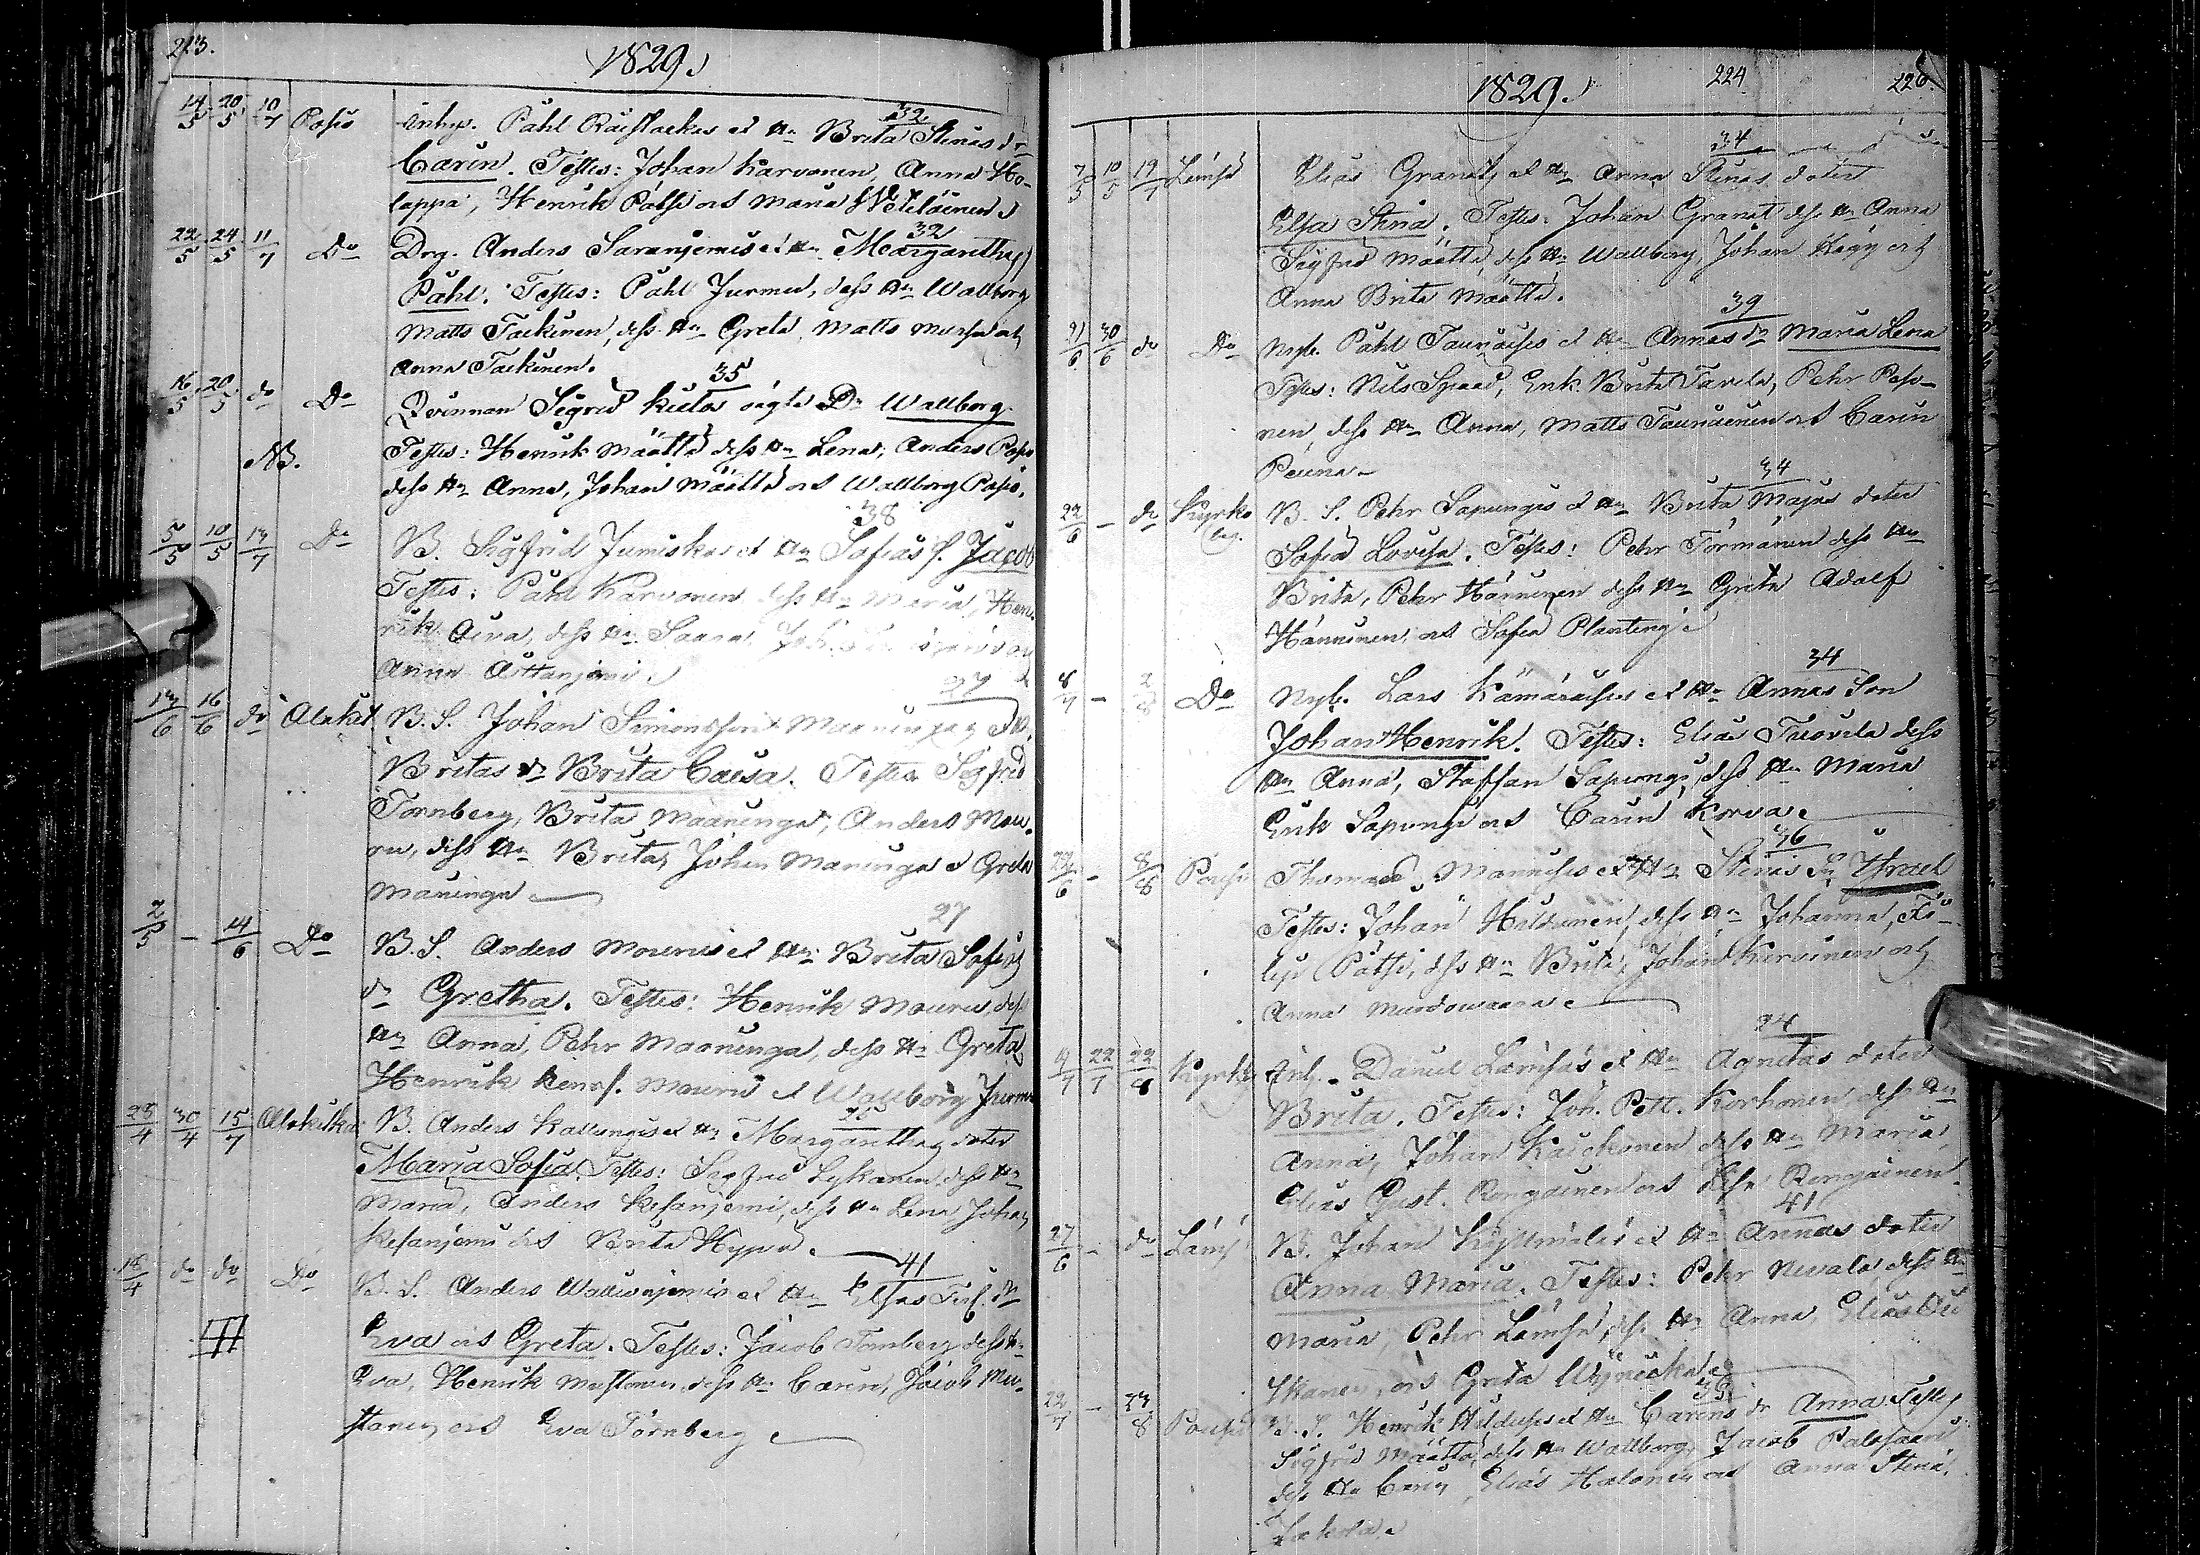 223.
1829.
14/5 20/5 10/7 Posio Inhys. Påhl Räisäckes et Hu Brita Stinas dr
32
Carin. Testes: Johan Karvonen, Anna Ho-
lappa, Henrik Pätsi och Maria
22/5 24/5 11/7 Do Drg. Anders Saranjemis et Hu Margarethas
32
Påhl. Testes: Påhl Jurmu, dess Hu Wallborg
Matts Tackinen, dess Hu Greta, Matts Mursu och
Anna Tackinen.
16/5 20/5 do Do Qvinnan Sigrid Kielos oägta Dr Wallborg.
35
NB. Testes: Henrik Määttä dess Hu Lena, Anders Posio
dess Hu Anna, Johan Määttä och Wallborg Posio.
5/5 10/5 13/7 Do B. Sigfrid Jumiskos et Hu Sofias S. Jacob
38
Testes: Påhl Karvonen dess Hu Maria, Hen-
rik Aiva, dess Hu Saara,
Anna
13/6 16/6 do Alakit. B. S. Johan Simonsson Maaningas
27
Britas dr Brita Caisa. Testes Sigfrid
Tornberg, Brita Maaninga, Anders Mou-
ru, dess Hu Brita, Johan Maninga o Greta
Maninga
2/5 – 14/6 Do B. S. Anders Mourus et Hu Brita Sofias
27
dr Gretha. Testes: Henrik Mouru, dess
Hu Anna, Pehr Maaninga, dess Hu Greta
Henrik Henrs. Mouru et Wallborg Jurmu
25/4 30/4 15/7 Alakitka B. Anders Kallungis et Hu Margarethas doter
Maria Sofia. Testes: Sigfrid Lykanen, dess Hu
Maria, Anders Kesänjemi, dess Hu Lena, Johan
Kesänjemi och Brita Hyper
18/4 do do Do B. S. Anders Wallewijemis et Hu Elsas Tvil. dr
41
Eva och Greta. Testes: Jacob Tornberg dess Hu
Eva, Henrik Mustonen, dess Hu Carin, Jacob Mu-
stonen och Eva Törnberg
1829.
224
226.
7/5 10/5 19/7 Lämsä Elias Granats et Hu Anna Stinas doter
34
Elsa Stina. Testes: Johan Granat dess Hu Anna
Sigfrid Määttä, dess Hu Wallborg, Johan Hägg och
Anna Brita Määttä.
21/6 30/6 do Do Nyb. Påhl Taunaises et Hu Annas dr Maria Lena
39
Testes: Nils Spaad, Erik Brita Tavela, Pehr Poso-
nen, dess Hu Anna, Matts Taunainen och Carin
Peuna
22/6 – do Kyrko B. S. Pehr Sapungis et Hu Brita Majas doter
34
Sofia Lovisa. Testes: Pehr Törmänen dess Hu
Brita, Pehr Hänninen dess Hu Greta Adolf
Hänninen, och Sofia Planting
8/7 – 2/8 Do Nyb. Lars Kämäräises et Hu Annas Son
34
Johan Henrik. Testes: Elias Taavela dess
Hu Anna, Staffan Sapungi, dess Hu Maria
Erik Sapungi och Carin Korva
22/6 – 8/8 Pousi Thomas Mannises et Hu Stinas Sn Israel
36
Testes: Johan Hiltunen, dess Hu Johanna, Fi-
lip Pätsi, dess Hu Brita, Johan Kervinen och
Anna Murdowaara
9/7 22/7 22/8 Kyrkby Inh. Daniel Lämsäs et Hu Agnetas doter
34
Brita. Testes: Joh. Pett. Korhonen, dess Hu
Anna, Johan Kaickonen dess Hu Maria,
Elias Gust. Rongainen och Rongainen.
27/6 – do Läms B. Johan Kyllmäläs et Hu Annas doter
41
Anna Maria. Testes: Pehr Nevala, dess Hu
Maria, Pehr Lämsä, dess Hu Anna, Elias
och Greta
22/7 – 23/8 Pousi B. S. Henrik Hildises et Hu Carins dr Anna Testes
36
Sigfrid Määttä, dess Hu Wallborg, Jacob Palosaari
dess Hu Carin, Elias Halonen och Anna Stina